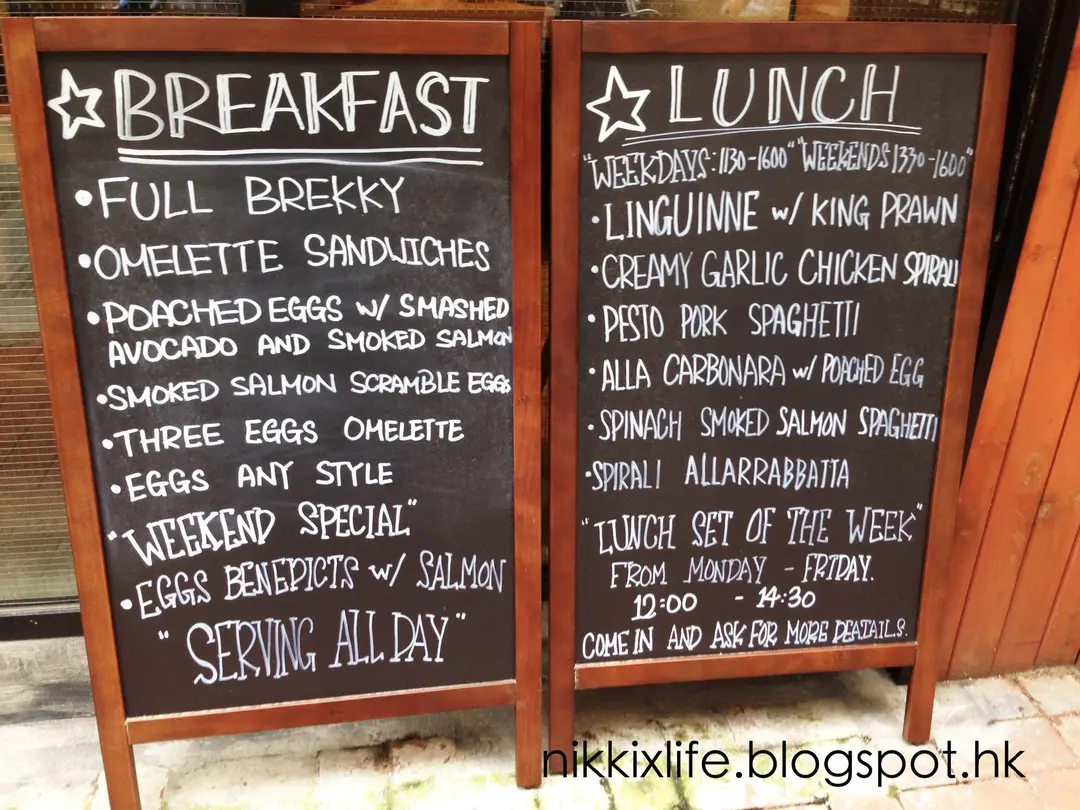 BREAKFAST
•FULL BREKKY
•OMELETTE SANDWICHES
•POACHED EGGS w/ SMASHED
AVOCADO AND SMOKED SALMON
•SMOKED SALMON SCRAMBLE EGGS
•THREE EGGS OMELETTE
•EGGS ANY STYLE
"WEEKEND SPECIAL"
•EGGS BENEDICTS w/ SALMON
"SERVING ALL DAY"
LUNCH
"WEEKDAYS: 1130-1600" "WEEKENDS 1330-1600"
•LINGUINNE w/ KING PRAWN
•CREAMY GARLIC CHICKEN SPIRALI
•PESTO PORK SPAGHETTI
•ALLA CARBONARA w/ POACHED EGG
•SPINACH SMOKED SALMON SPAGHETTI
•SPIRALI ALLARRABBATTA
"LUNCH SET OF THE WEEK"
FROM MONDAY - FRIDAY.
12:00 - 14:30
COME IN AND ASK FOR MORE DEATAILS.
nikkixlife.blogspot.hk